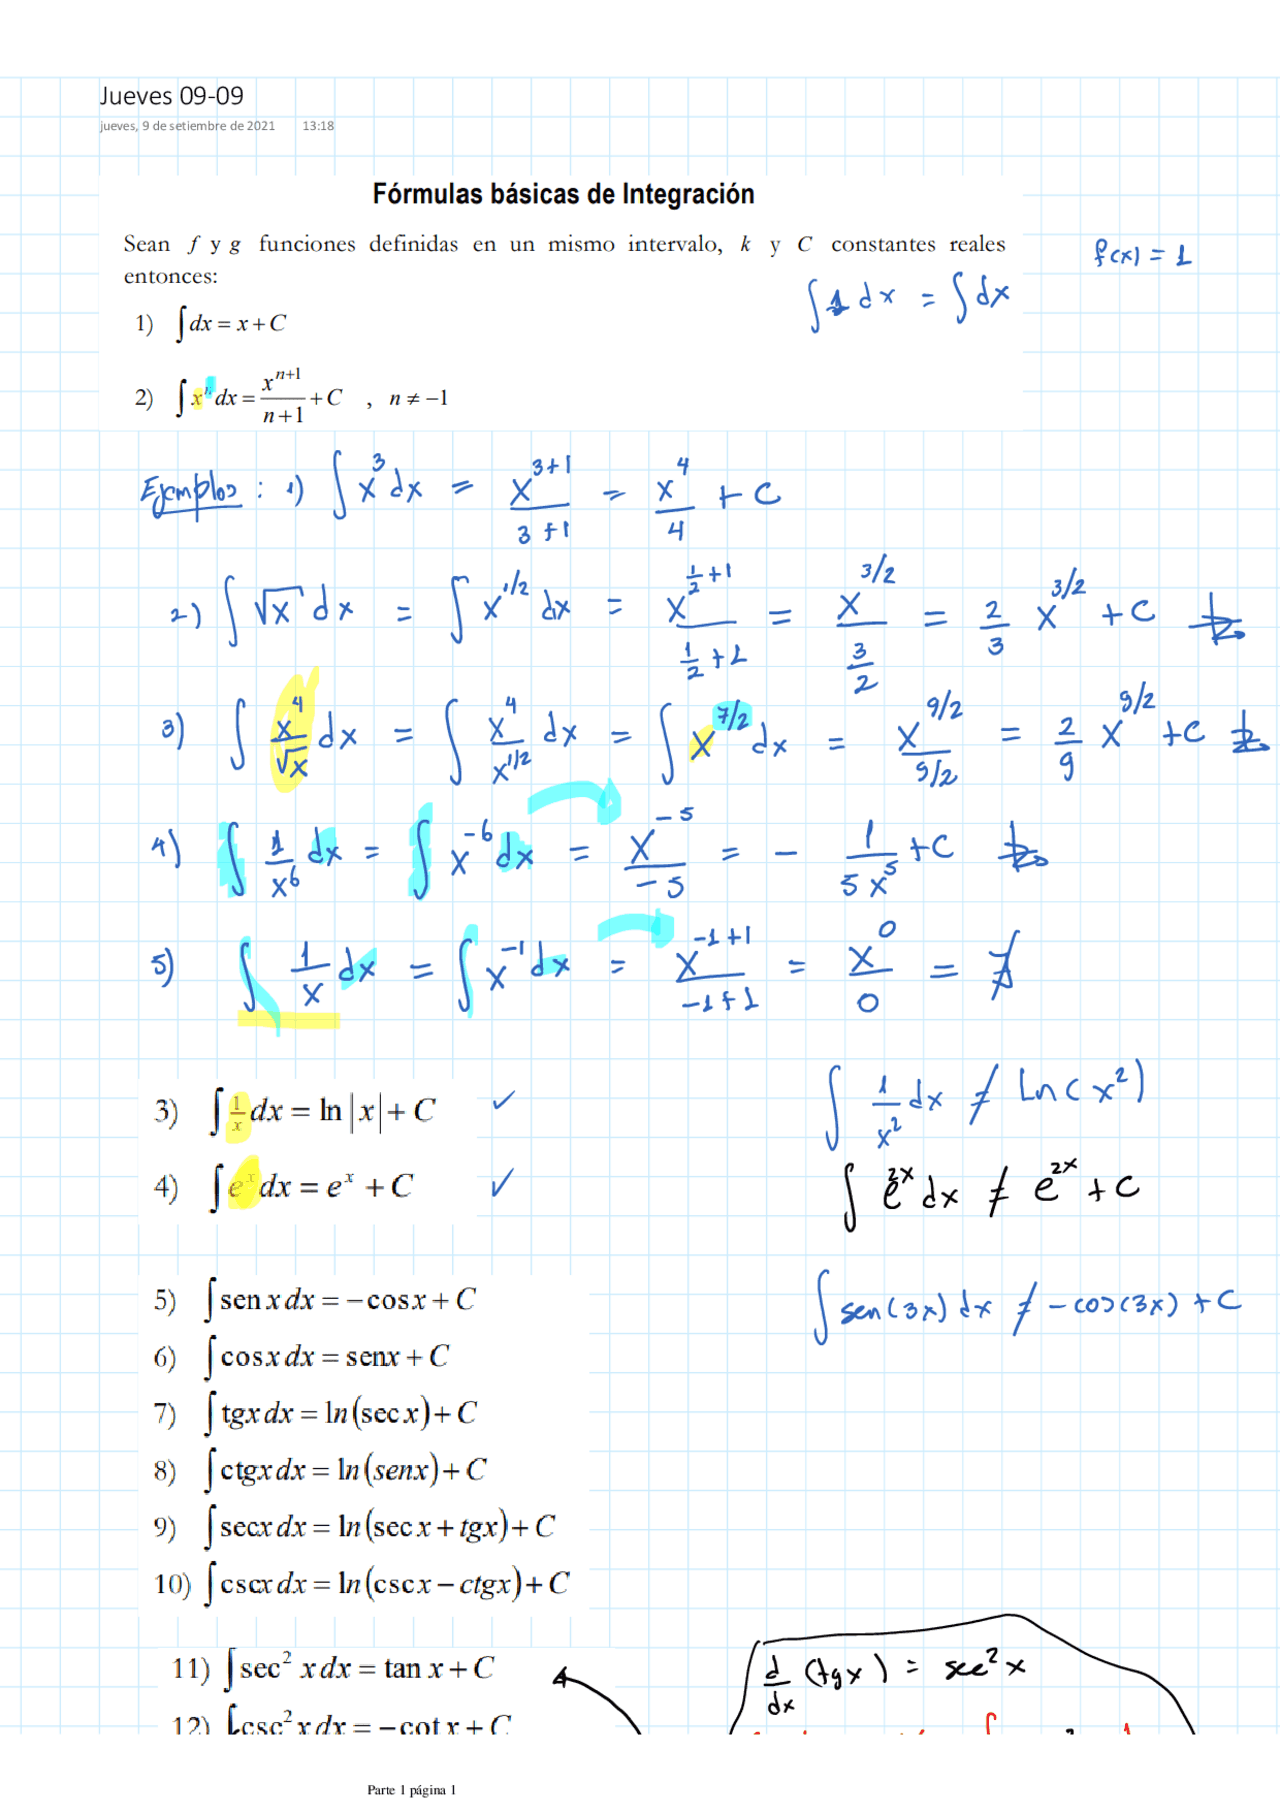 Jueves 09-09
jueves, 9 de setiembre de 2021 13:18
Fórmulas básicas de Integración
Sean f y g funciones definidas en un mismo intervalo, k y C constantes reales
entonces:
f(x) = 1
∫ 1 dx = ∫ dx
1) ∫ dx = x + C
2) ∫ xⁿ dx = x^(n+1)/(n+1) + C , n ≠ −1
Ejemplos : 1) ∫ x³ dx = x^(3+1)/(3+1) = x⁴/4 + C
2) ∫ √x dx = ∫ x^(1/2) dx = x^(1/2+1)/(1/2+1) = x^(3/2)/(3/2) = 2/3 x^(3/2) + C
3) ∫ x⁴/√x dx = ∫ x⁴/x^(1/2) dx = ∫ x^(7/2) dx = x^(9/2)/(9/2) = 2/9 x^(9/2) + C
4) ∫ 1/x⁶ dx = ∫ x^(−6) dx = x^(−5)/(−5) = − 1/(5x⁵) + C
5) ∫ 1/x dx = ∫ x^(−1) dx = x^(−1+1)/(−1+1) = x⁰/0 = ∄
3) ∫ 1/x dx = ln|x| + C ✓
∫ 1/x² dx ≠ Ln(x²)
4) ∫ eˣ dx = eˣ + C ✓
∫ e^(2x) dx ≠ e^(2x) + C
5) ∫ sen x dx = −cos x + C
∫ sen(3x) dx ≠ −cos(3x) + C
6) ∫ cos x dx = senx + C
7) ∫ tgx dx = ln(sec x) + C
8) ∫ ctgx dx = ln(senx) + C
9) ∫ secx dx = ln(sec x + tgx) + C
10) ∫ cscx dx = ln(csc x − ctgx) + C
11) ∫ sec² x dx = tan x + C
d/dx (tgx) = sec²x
12) ∫ csc² x dx = −cot x + C
Parte 1 página 1